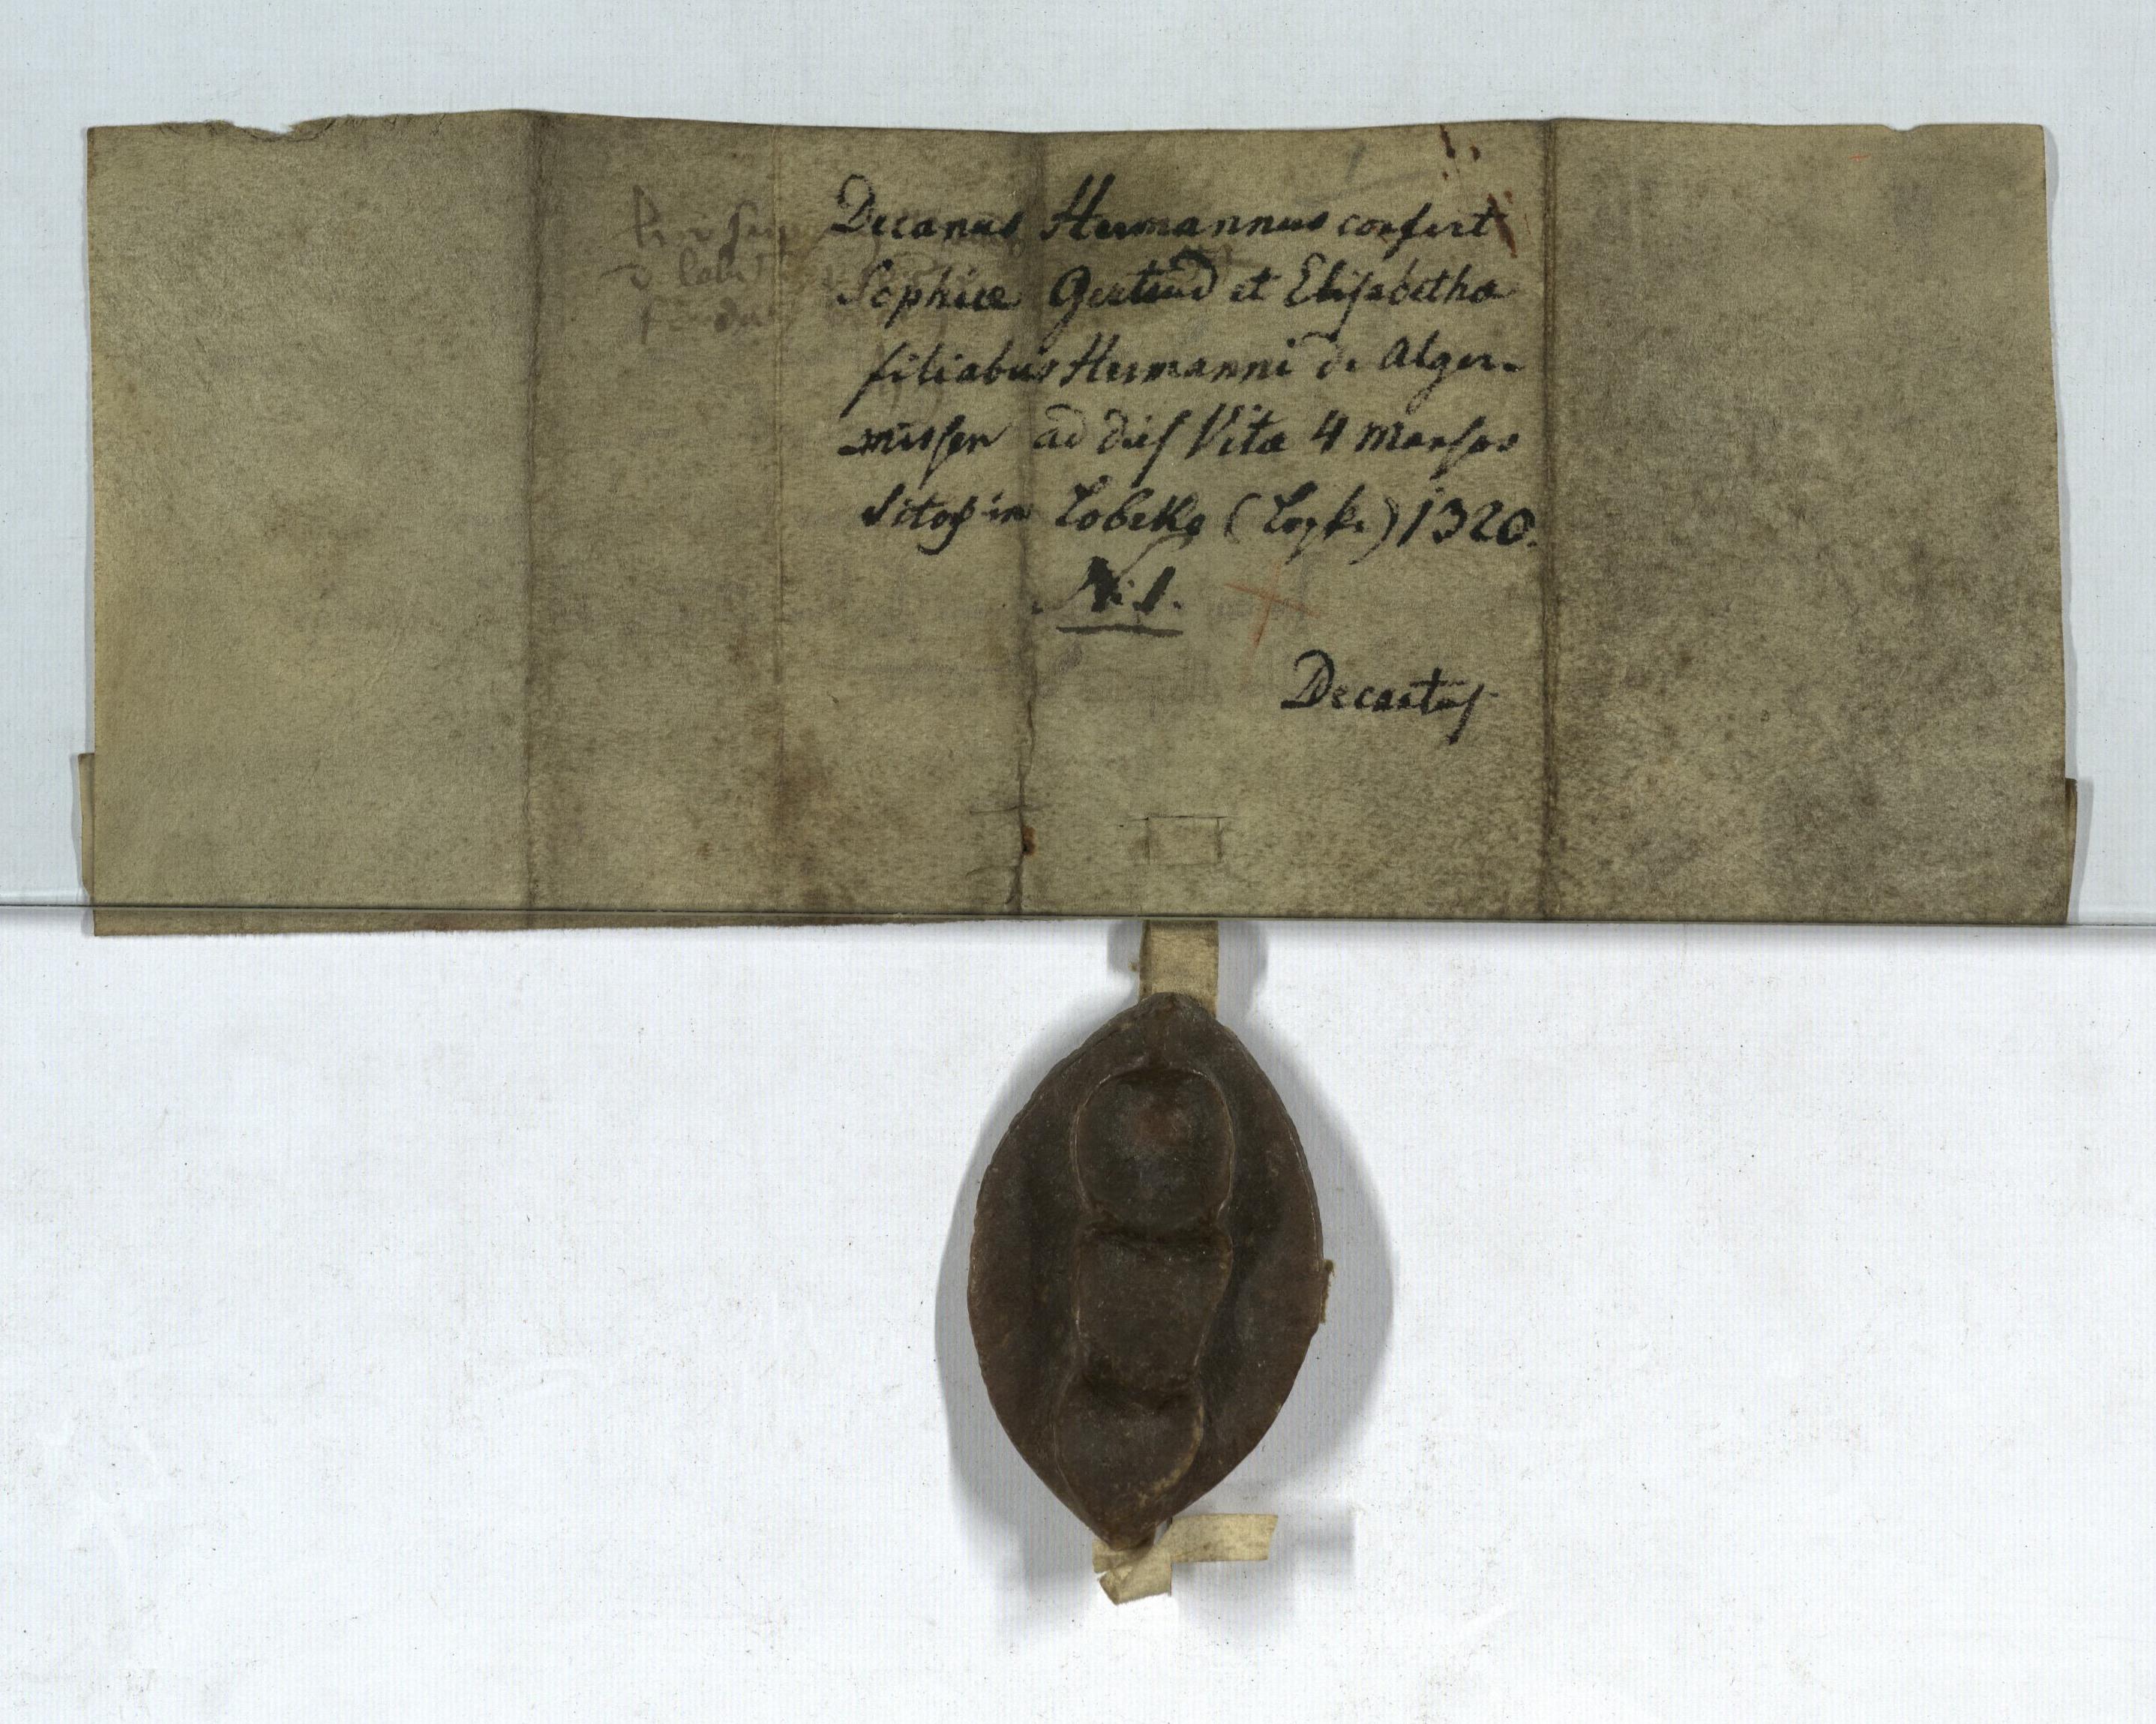 Decanus Hermannus confert
Sophiæ Gertrud et Elisabetha
filiabus Hermanni de Alger-
missen ad dies Vitæ 4 mansos
sitos in Lobeke (Lopke) 1320.
N. 1.
Decantus